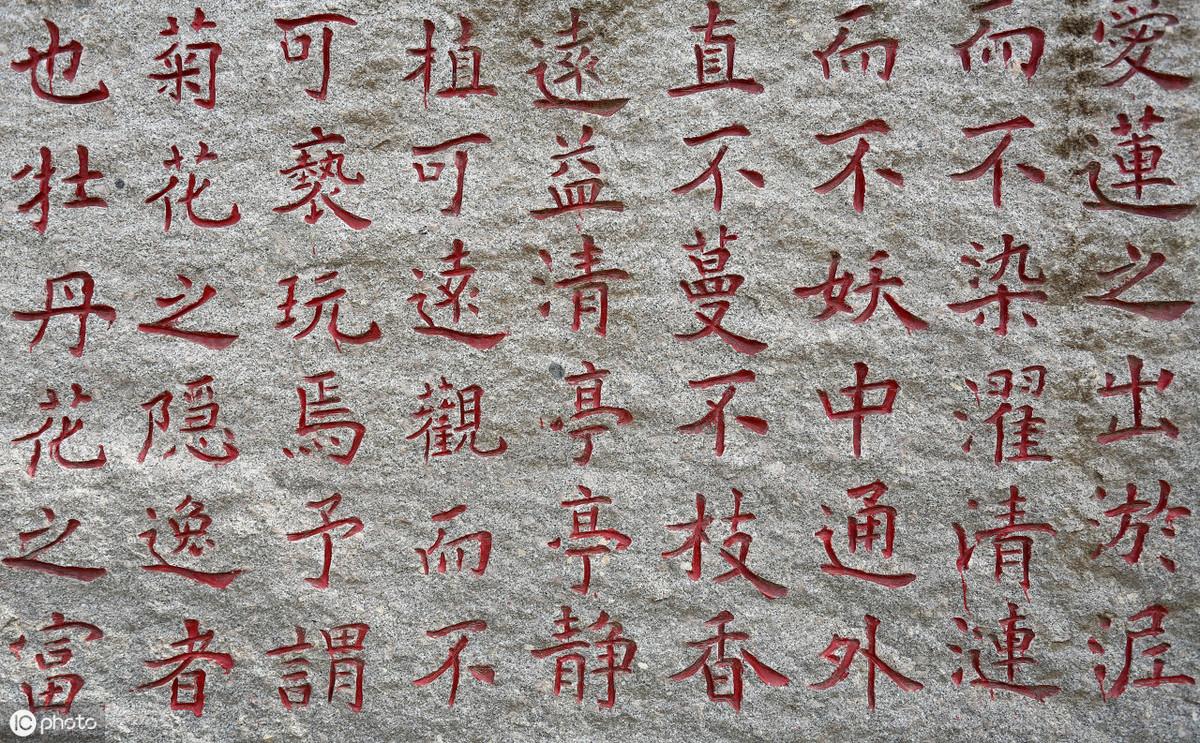 愛蓮之出淤泥
而不染濯清漣
而不妖中通外
直不蔓不枝香
遠益清亭亭静
植可遠觀而不
可褻玩焉予謂
菊花之隱逸者
也牡丹花之富
IC photo